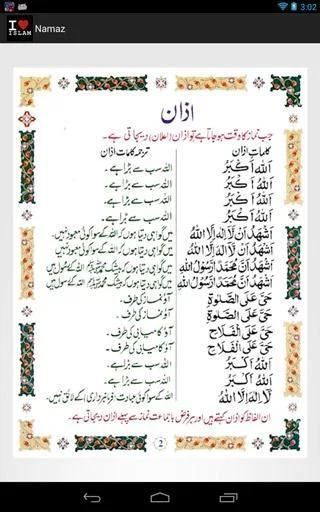 3:02
I ❤ ISLAM
Namaz
اذان
جب نماز کا وقت ہو جاتا ہے تو اذان (اعلان) دی جاتی ہے۔
کلمات اذان ترجمہ کلمات اذان
اَللّٰهُ اَكْبَرُ اللہ سب سے بڑا ہے۔
اَللّٰهُ اَكْبَرُ اللہ سب سے بڑا ہے۔
اَللّٰهُ اَكْبَرُ اللہ سب سے بڑا ہے۔
اَللّٰهُ اَكْبَرُ اللہ سب سے بڑا ہے۔
اَشْهَدُ اَنْ لَّا اِلٰهَ اِلَّا اللّٰهُ میں گواہی دیتا ہوں کہ اللہ کے سوا کوئی معبود نہیں۔
اَشْهَدُ اَنْ لَّا اِلٰهَ اِلَّا اللّٰهُ میں گواہی دیتا ہوں کہ اللہ کے سوا کوئی معبود نہیں۔
اَشْهَدُ اَنَّ مُحَمَّدًا رَّسُوْلُ اللّٰهِ میں گواہی دیتا ہوں کہ بیشک محمد ﷺ اللہ کے رسول ہیں
اَشْهَدُ اَنَّ مُحَمَّدًا رَّسُوْلُ اللّٰهِ میں گواہی دیتا ہوں کہ بیشک محمد ﷺ اللہ کے رسول ہیں
حَیَّ عَلَی الصَّلٰوةِ آؤ نماز کی طرف۔
حَیَّ عَلَی الصَّلٰوةِ آؤ نماز کی طرف۔
حَیَّ عَلَی الْفَلَاحِ آؤ کامیابی کی طرف۔
حَیَّ عَلَی الْفَلَاحِ آؤ کامیابی کی طرف۔
اَللّٰهُ اَكْبَرُ اللہ سب سے بڑا ہے۔
اَللّٰهُ اَكْبَرُ اللہ سب سے بڑا ہے۔
لَا اِلٰهَ اِلَّا اللّٰهُ اللہ کے سوا کوئی عبادت (فرمانبرداری) کے لائق نہیں۔
ان الفاظ کو اذان کہتے ہیں اور ہر فرض باجماعت نماز سے پہلے اذان دی جاتی ہے۔
2